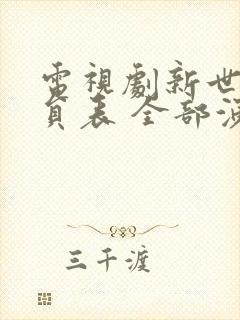 電視劇新世
員表 全部演
三千渡